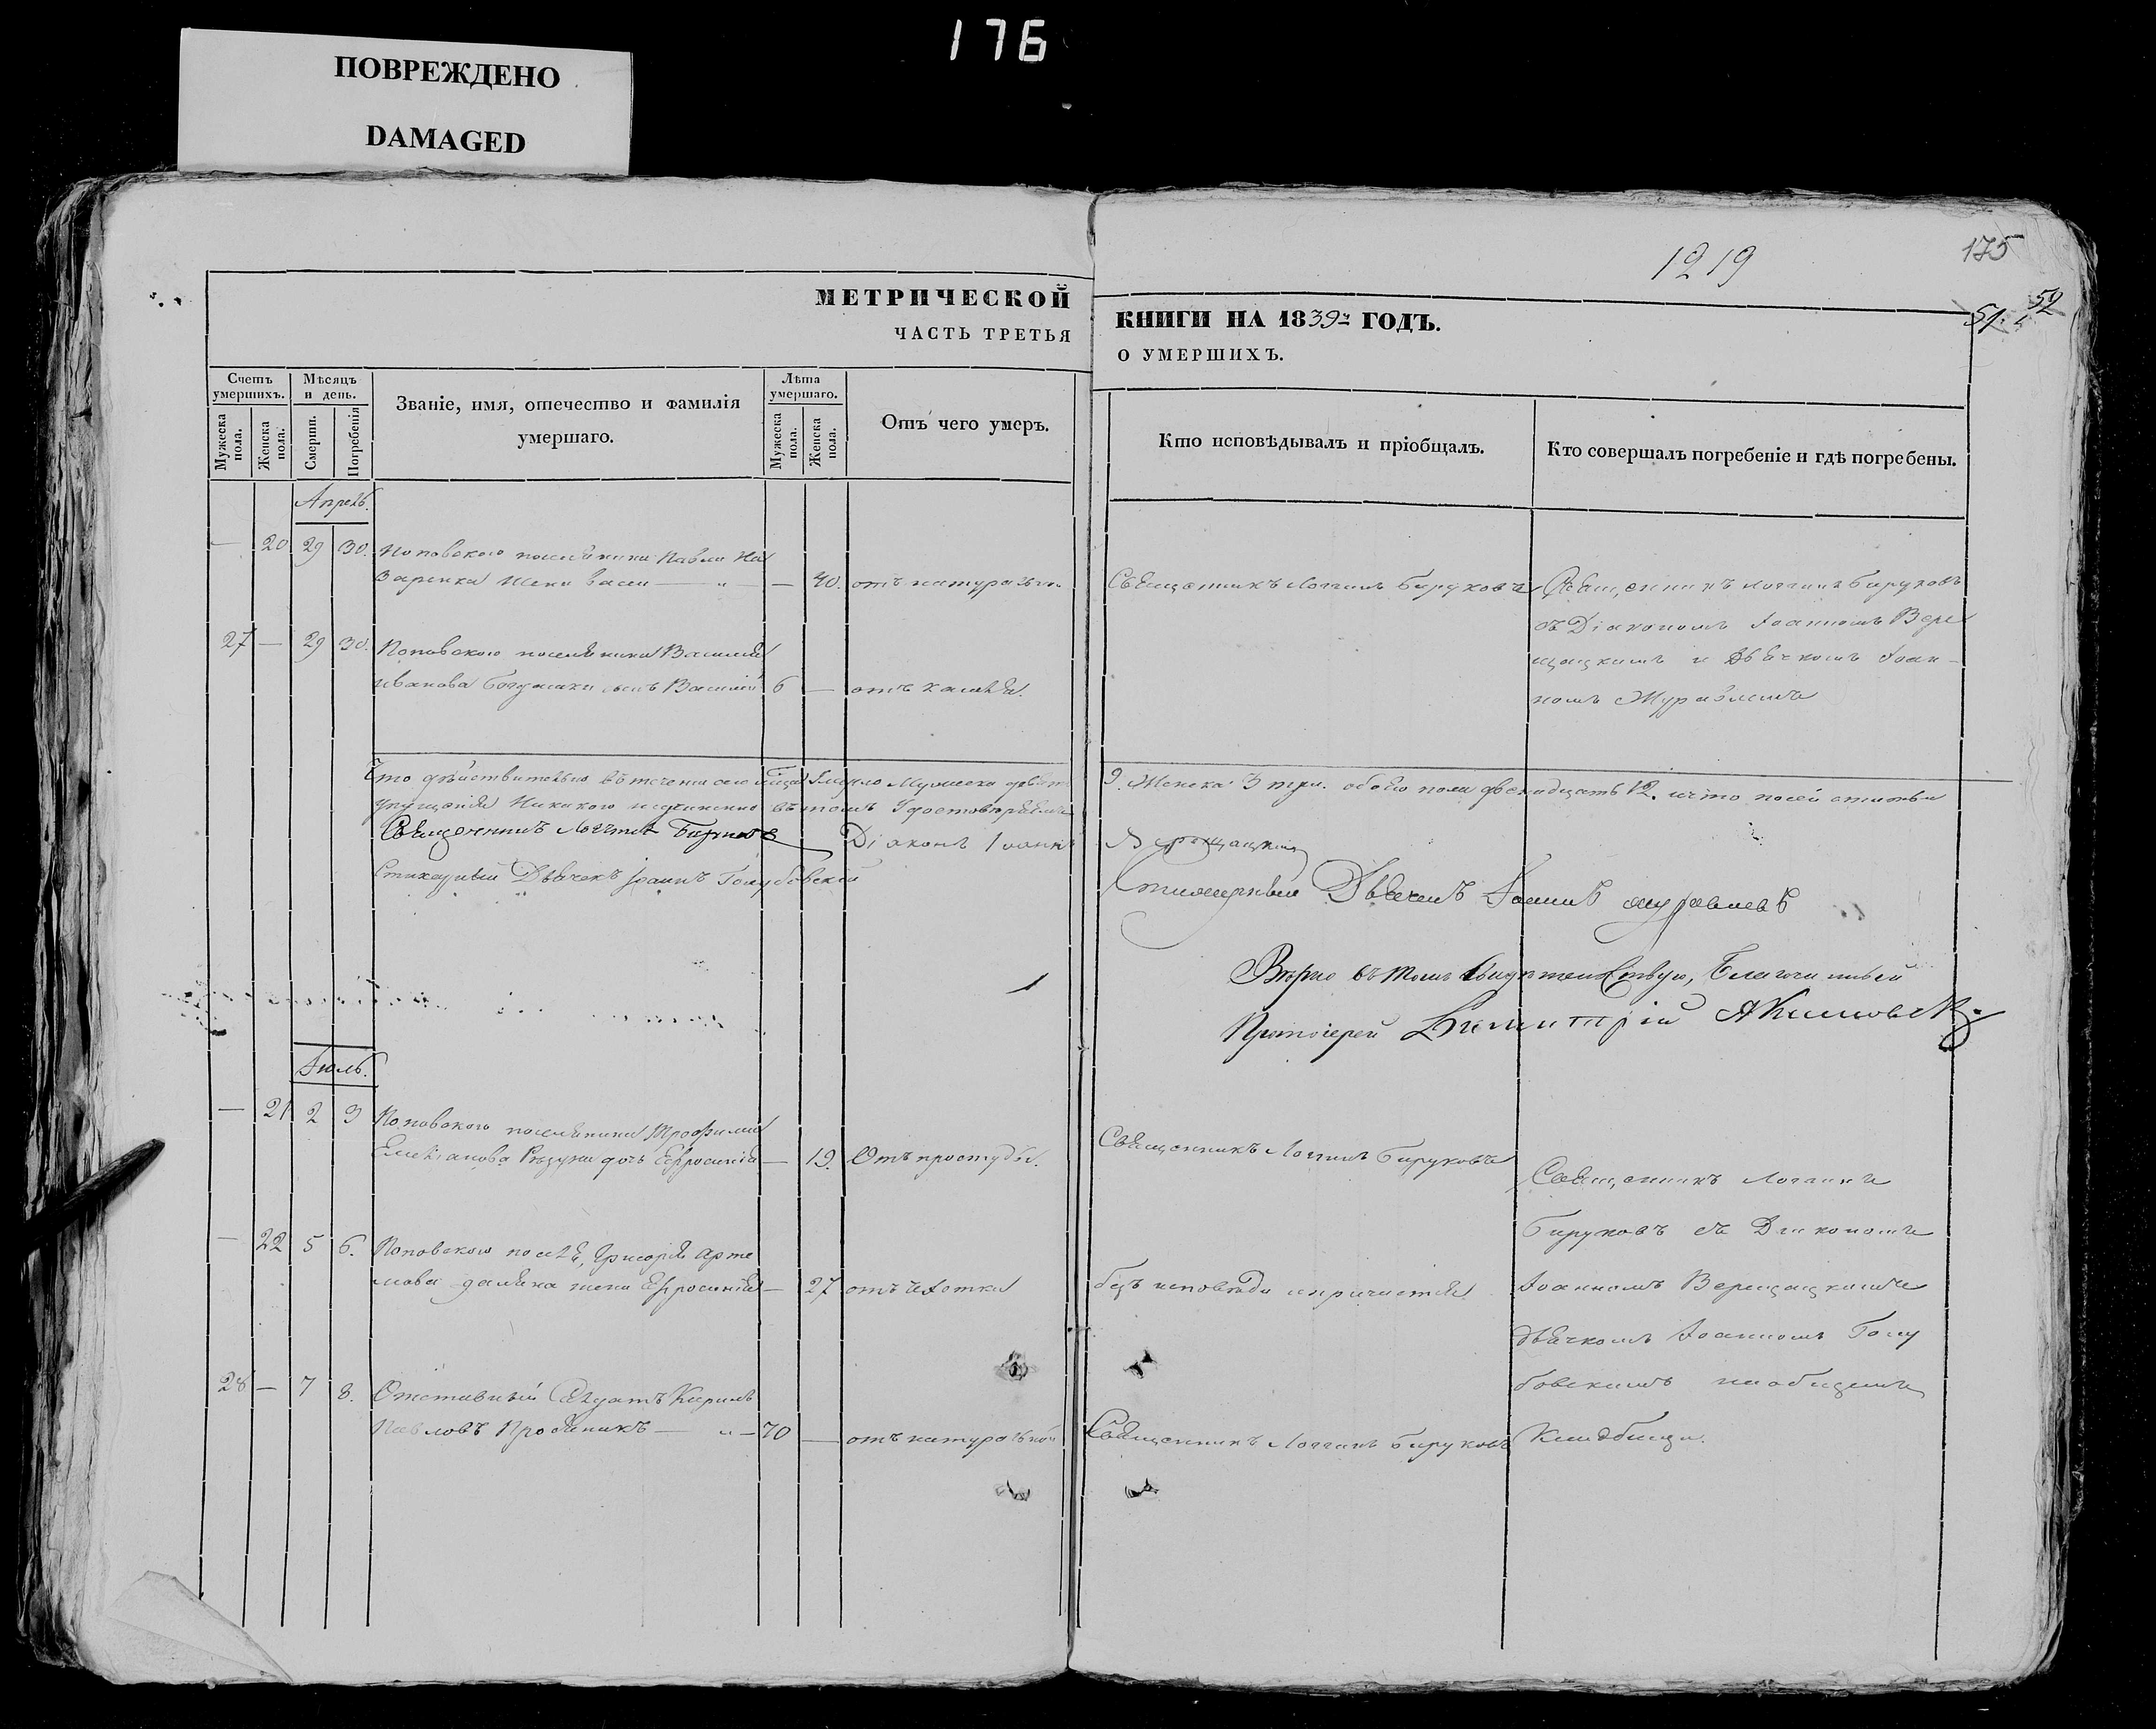 176
ПОВРЕЖДЕНО
DAMAGED
1219
175
51. 52
МЕТРИЧЕСКОЙ
КНИГИ НА 1839й ГОДЪ.
ЧАСТЬ ТРЕТЬЯ
О УМЕРШИХЪ.
Счетъ умершихъ.
Мѣсяцъ и день.
Званіе, имя, отечество и фамилія умершаго.
Лѣта умершаго.
Отъ чего умеръ.
Кто исповѣдывалъ и пріобщалъ.
Кто совершалъ погребеніе и гдѣ погребены.
Мужеска пола.
Женска пола.
Смерти.
Погребенія
Мужеска пола.
Женска пола.
Апрель.
— 20 29 30. Поповского поселянина Павла На
заренка жена — „ — — 40. отъ натуральной
Священникъ Логгинъ Бируковъ
Священникъ Логгинъ Бируковъ
съ Діакономъ Іоанномъ Вере
щацкимъ и Дьячкомъ Іоан-
номъ Журавлемъ
27 — 29 30. Поповского поселянина Василія
Иванова сынъ Василій 6 — отъ кашля.
Что дѣйствительно въ теченіи сего мѣсяца умерло Мужеска девять
9. Женска 3 три. обоего пола двенадцать 12. и что по сей статьи
упущенія Никакого неучинено въ томъ Удостовѣряемъ
Священникъ Логгинъ Бируковъ Діаконъ Іоаннъ
Верещацкій
Стихарный Дьячекъ Іоаннъ Голубовскій
Стихарный Дьячекъ Іоаннъ Журавлевъ
Вѣрно въ томъ Свидѣтельствую, Благочинный
Протоіерей Димитрій Акимовск.
Іюль.
— 21 2 3 Поповского поселянина Трофима
дочь Ефросинія — 19. Отъ простуды.
Священникъ Логгинъ Бируковъ
Священникъ Логгинъ
Бируковъ съ Діякономъ
— 22 5 6. Поповского посел, Григорія Арте
мова жена Ефросинія — 27 отъ чахотки
безъ исповѣди и причастія.
Іоанномъ Верещацкимъ
дьячкомъ Іоанномъ Голу
бовскимъ на общемъ
28 — 7 8. Отставный Солдатъ Кирилъ
Павловъ — „ — 70 — отъ натуральной
Священникъ Логгинъ Бируковъ
Кладбищи.